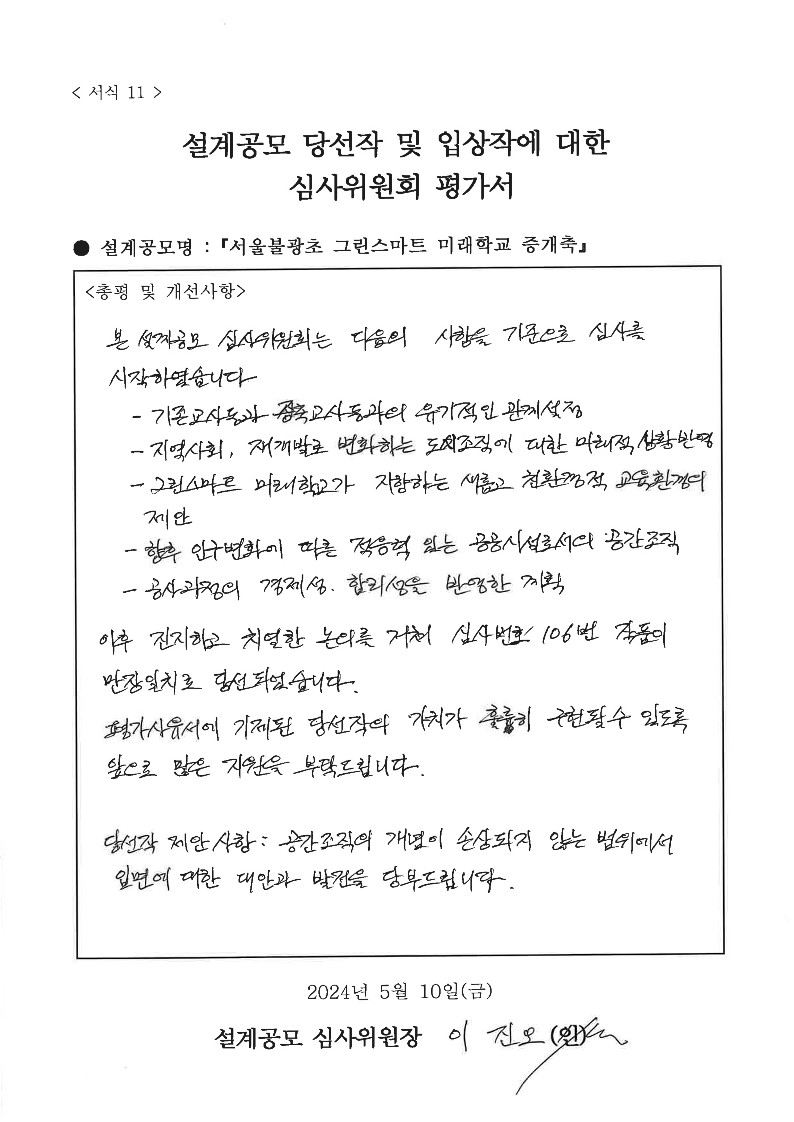 < 서식 11 >
설계공모 당선작 및 입상작에 대한
심사위원회 평가서
● 설계공모명 : 『서울불광초 그린스마트 미래학교 증개축』
<총평 및 개선사항>
본 설계공모 심사위원회는 다음의 사항을 기준으로 심사를
시작하였습니다
- 기존교사동과 증축교사동과의 유기적인 관계설정
- 지역사회, 재개발로 변화하는 도시조직에 대한 미래적 상황반영
- 그린스마트 미래학교가 지향하는 새롭고 친환경적 교육환경의
제안
- 향후 인구변화에 따른 적응력 있는 공용시설로서의 공간조직
- 공사과정의 경제성. 합리성을 반영한 계획
이후 진지하고 치열한 논의를 거쳐 심사번호 106번 작품이
만장일치로 당선되었습니다.
평가사유서에 기재된 당선작의 가치가 훌륭히 구현될수 있도록
앞으로 많은 지원을 부탁드립니다.
당선작 제안사항 : 공간조직의 개념이 손상되지 않는 범위에서
입면에 대한 대안과 발전을 당부드립니다.
2024년 5월 10일(금)
설계공모 심사위원장 이 진오 (인)